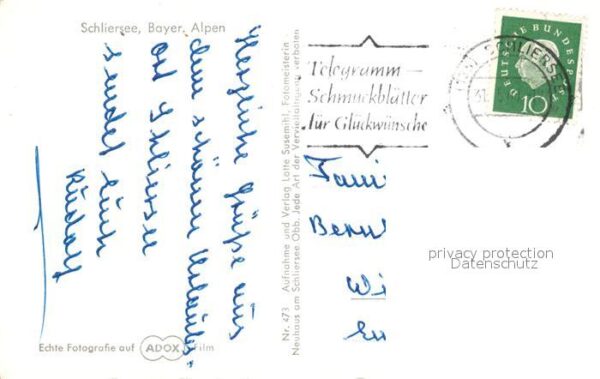 Schliersee, Bayer. Alpen
Herzliche Grüße aus
dem schönen Urlaubs-
ort Schliersee
sendet Euch
Rudolf
Echte Fotografie auf ADOX Film
Nr. 473 Aufnahme und Verlag Lotte Susemihl, Fotomeisterin -
Neuhaus am Schliersee Obb. Jede Art der Vervielfältigung verboten
Telegramm —
Schmuckblätter
für Glückwünsche
SCHLIERSEE
DEUTSCHE BUNDESPOST
10
Fami
Bern
Wi
privacy protection
Datenschutz